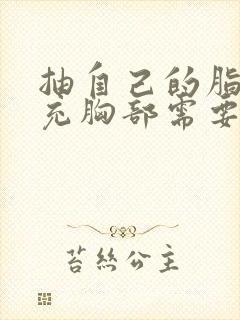 抽自己的脂
充胸部需要
苔丝公主